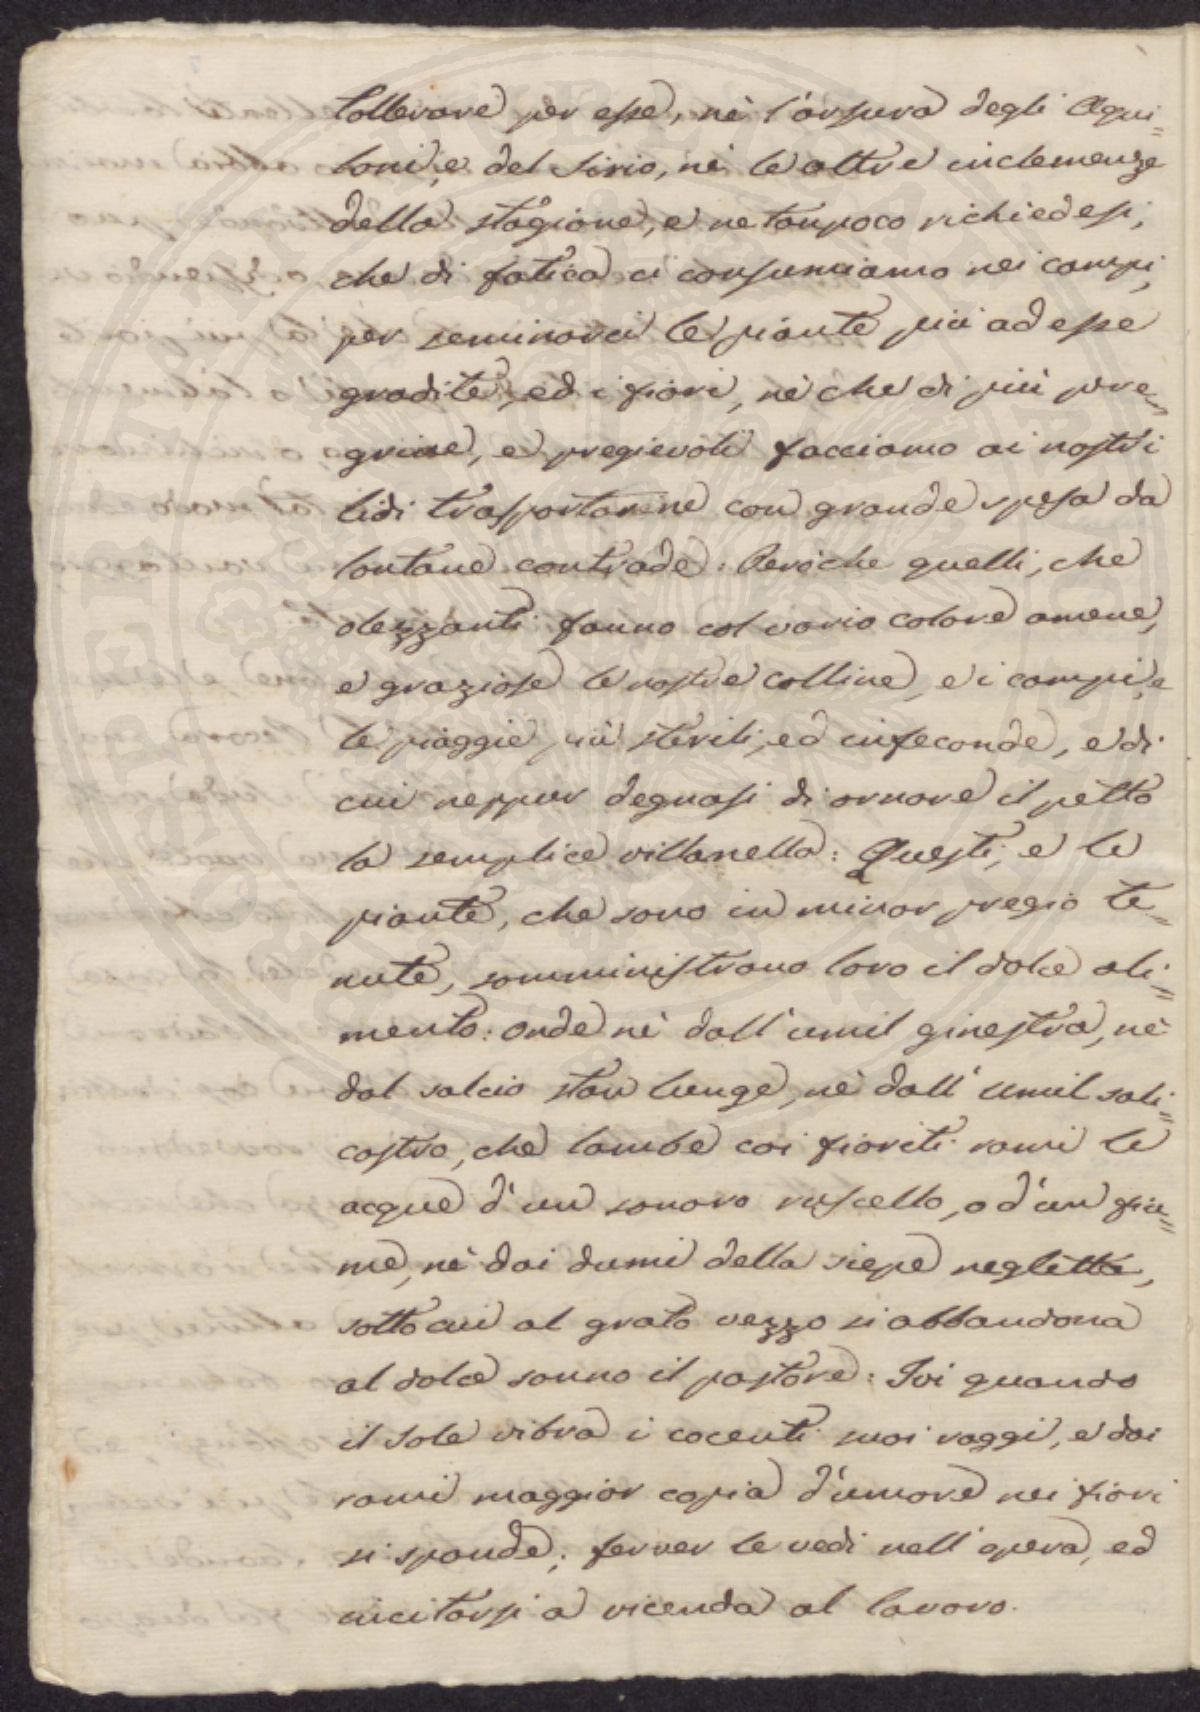 tollerare per esse, nè l'arsura degli Aqui=
loni, e del Sirio, nè le altre inclemenze
della stagione, e ne tanpoco richiedesi,
che di fatica ci consumiamo nei campi,
per seminarci le piante più ad esse
gradite, ed i fiori, nè che di più pere=
grine, e pregievoli facciamo ai nostri
lidi trasportarne con grande spesa da
lontane contrade: Peroche quelli, che
olezzanti fanno col vario colore amene,
e graziose le nostre colline, e i campi, e
le piaggie più sterili, ed infeconde, e di
cui neppur degnasi di ornare il petto
la semplice villanella: Questi, e le
piante, che sono in minor pregio te=
nute, somministrano loro il dolce ali=
mento: onde nè dall'umil ginestra, nè
dal salcio stan lunge, nè dall'umil sali=
castro, che lambe coi fioriti rami le
acque d'un sonoro ruscello, o d'un fiu=
me, nè dai dumi della siepe neglette,
sotto cui al grato rezzo si abbandona
al dolce sonno il pastore: Ivi quando
il Sole vibra i cocenti suoi raggi, e dai
rami maggior copia d'umore nei fiori
si spande; ferver le vedi nell'opera, ed
incitarsi a vicenda al lavoro.